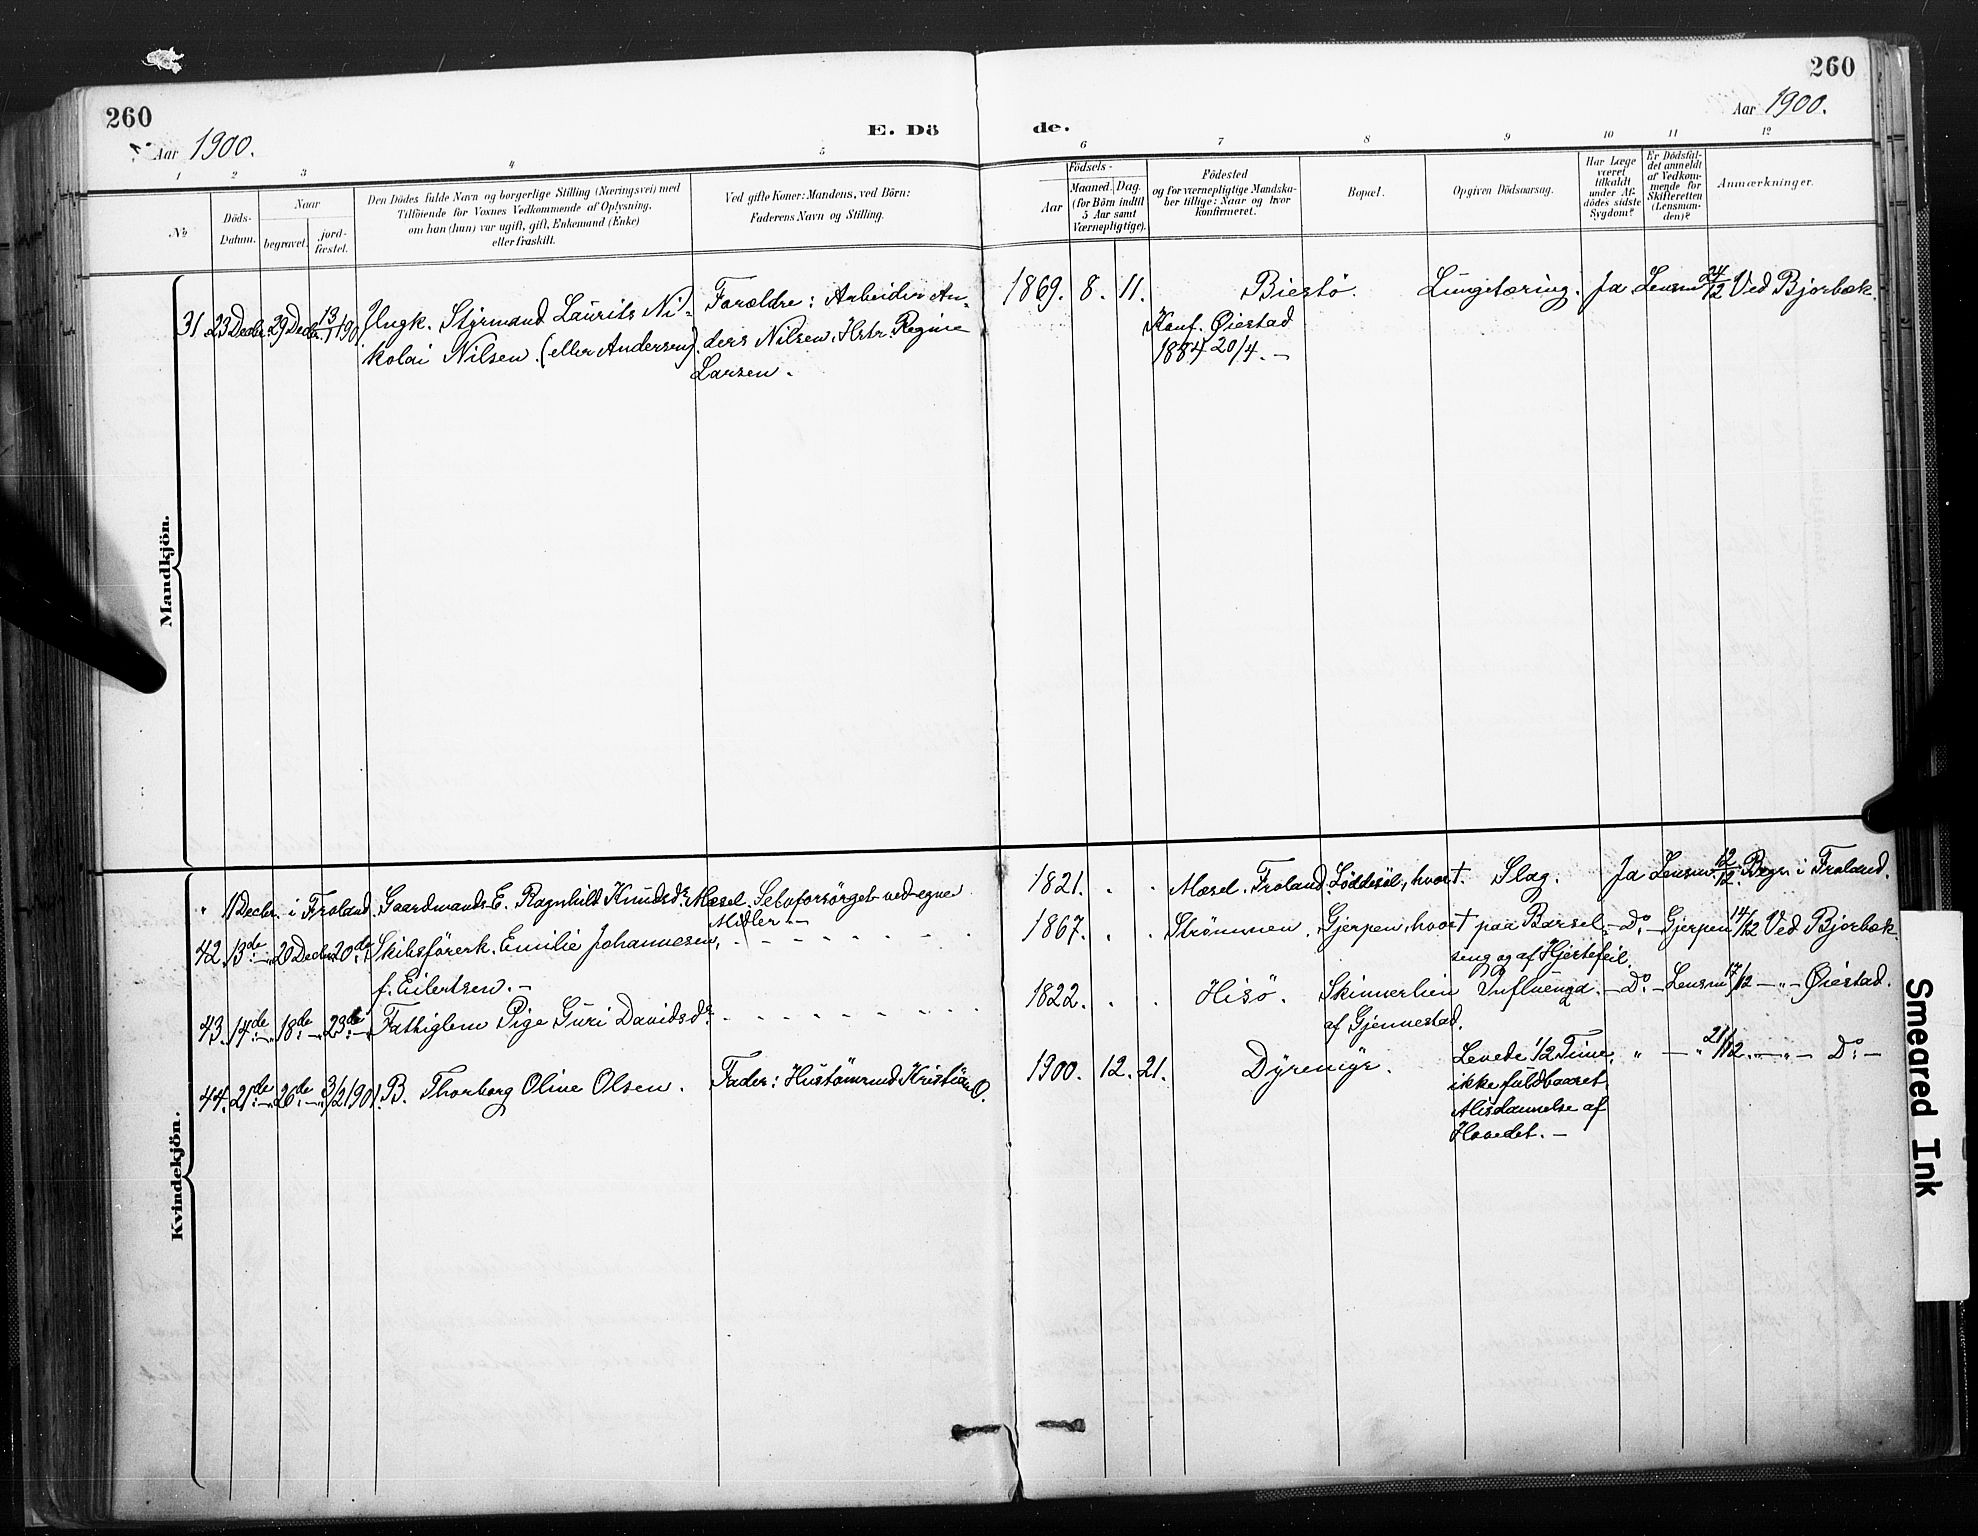 260
260
Aar 1900.
E. Dö
de.
Aar 1900.
1
2
3
4
5
6
7
8
9
10
11
12
No
Döds-
Datum.
Naar
begravet.
jord-
fæstet.
Den Dödes fulde Navn og borgerlige Stilling (Næringsvei) med
Tilföiende for Voxnes Vedkommende af Oplysning,
om han (hun) var ugift, gift, Enkemand (Enke)
eller fraskilt.
Ved gifte Koner: Mandens, ved Börn:
Faderens Navn og Stilling.
Födsels-
Aar
Maaned. Dag.
(for Börn indtil
5 Aar samt
Værnepligtige).
Födested
og for værnepligtige Mandska-
ber tillige: Naar og hvor
konfirmeret.
Bopæl.
Opgiven Dödsaarsag.
Har Læge
været
tilkaldt
under Af-
dödes sidste
Sygdom?
Er Dödsfal-
det anmeldt
af Vedkom-
mende for
Skifteretten
(Lensman-
den)?
Anmærkninger.
Mandkjön.
31 23 Decbr. 29 Decbr. 13/1 190 Ungk. Styrmand Laurits Ni-
kolai Nilsen. (eller Andersen)
Forældre: Arbeider An-
ders Nilsen, Hstr. Regine
Larsen.
1869. 8. 11. Biestö. Lungetæring. Ja Lensm 24/12 Ved Bjorbæk.
Konf. Øiestad
1884 20/4. —
Kvindekjön.
" 1 Decbr. i Froland. Gaardmands E. Ragnhild Knudsd. Mæsel. Selvforsörget ved egne
Midler —
1821. . . Mæsel. Froland. Løddesöl, hvort. Slag. Ja Lensm 12/12. Begr. i Froland.
42. 13de — 20 Decbr. 20de Skibsförerk. Emilie Johannesen,
f. Eilertsen. —
1867. . . Strömmen. Gjerpen, hvort paa Barsel- Do — Gjerpen 14/12 Ved Bjorbæk.
seng og af Hjertefeil.
43. 14de — 18de — 23de Fattiglem Pige Guri Davidsdr.
1822. . . Hisö. Skinnerlien Influenza. — Do — Lensm 17/12 — " — Øiestad.
af Gjennestad.
44. 21de — 26de — 3/2 1901. B. Thorborg Oline Olsen. Fader: Hustömmd Kristian O.
1900. 12. 21. Dyremyr. Levede 1/2 Time, " — " 21/12. — " — Do —
ikke fuldbaaret
Misdannelse af
Hovedet. —
Smeared Ink